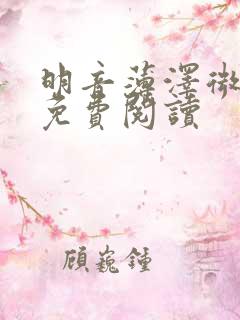 明音薄澤微
免費閱讀
顧巍鍾